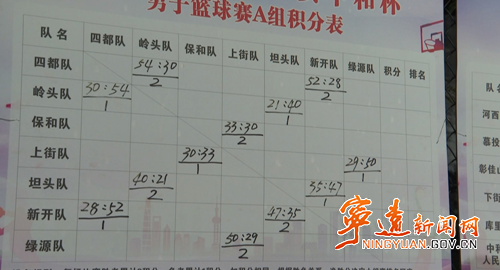 和杯
男子篮球赛A组积分表
队名 四都队 岭头队 保和队 上街队 坦头队 新开队 绿源队 积分 排名
四都队 54:30 2 52:28 2
岭头队 30:54 1 21:40 1
保和队 33:30 2
上街队 30:33 1 29:50 1
坦头队 40:21 2 35:47 1
新开队 28:52 1 47:35 2
绿源队 50:29 2
队名
河西
慕投
彰佳山
下
库里
中科
人民
宁远新闻网
NINGYUAN.GOV.CN